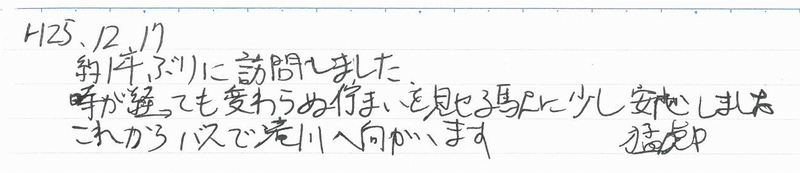 H25.12.17
約1年ぶりに訪問しました
時が経っても変わらぬ佇まいを見せる駅に少し安心しました
これからバスで滝川へ向かいます
猛虎